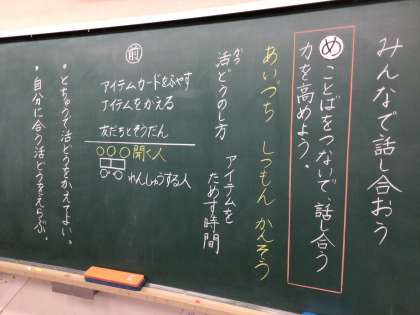 みんなで話し合おう
めことばをつないで、話し合う
力を高めよう。
あいづち しつもん かんそう
活どうのし方
かつ
アイテムを
ためす時間
前
アイテムカードをふやす
アイテムをかえる
友だちとそうだん
○○○聞く人
れんしゅうする人
・とちゅうで活どうをかえてよい。
・自分に合う活どうをえらぶ。